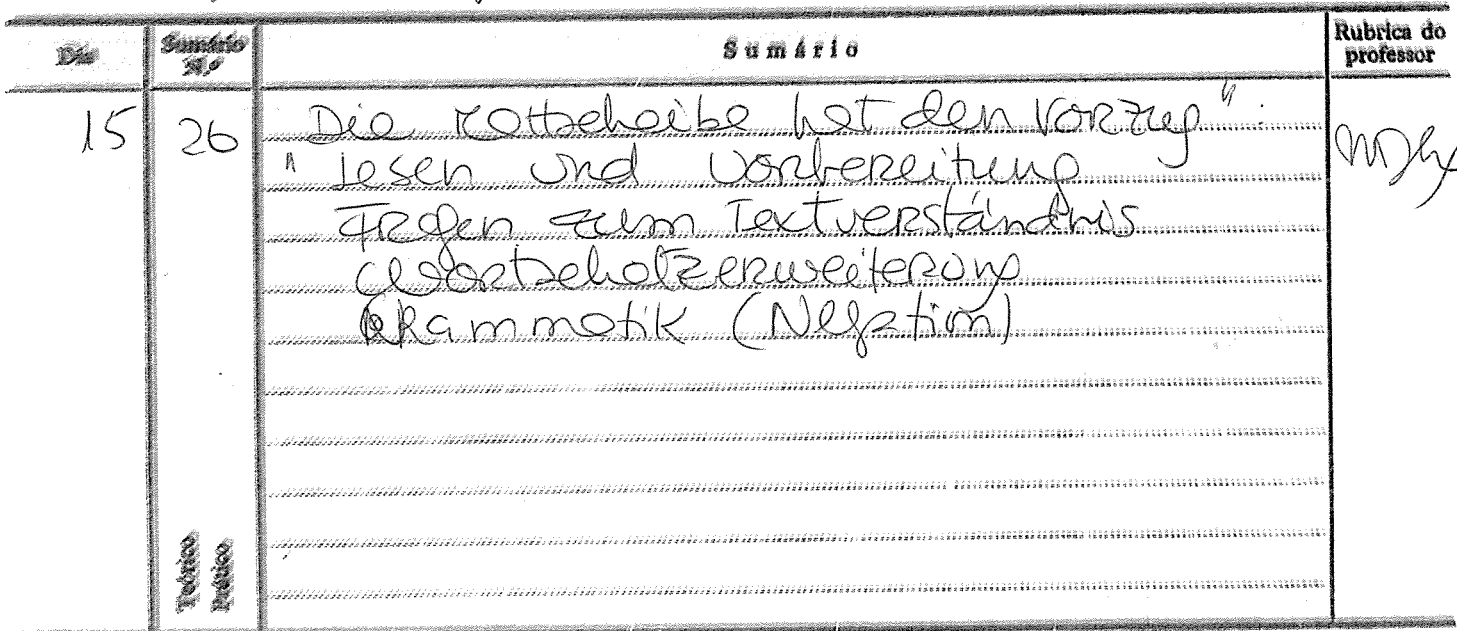 Dia
Sumário N.º
Sumário
Rubrica do professor
15
26
Die Mattscheibe hat den Vorzug":
" Lesen und Vorbereitung
Fragen zum Textverständnis
Wortschatzerweiterung
Grammatik (Negation)
Teórico
Prático